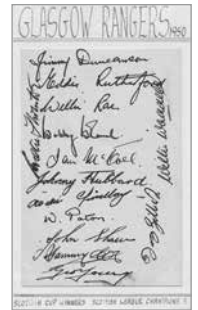 GLASGOW RANGERS 1950
Jimmy Duncanson
Eddie Rutherford
Willie Rae
Bobby Brown
Ian McColl
Johnny Hubbard
W. Paton
John Shaw
Sammy Cox
Geo Young
Willie Thornton
Willie Waddell
SCOTTISH CUP WINNERS SCOTTISH LEAGUE CHAMPIONS